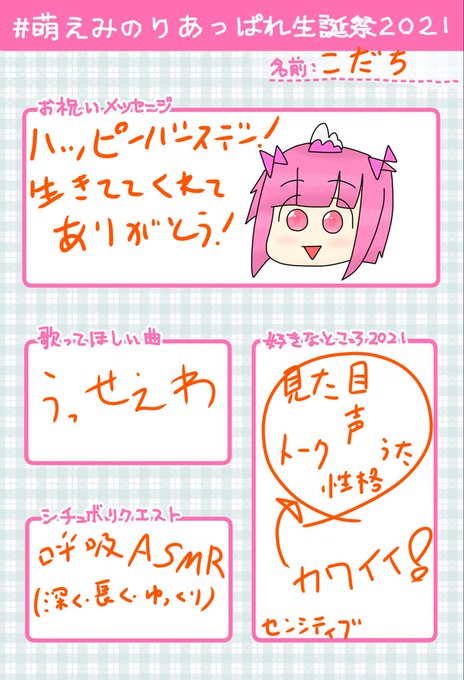 #萌えみのりあっぱれ生誕祭2021
名前:こだち
お祝いメッセージ
ハッピーバースデー!
生きててくれて
ありがとう!
歌ってほしい曲
うっせえわ
好きなところ2021
見た目
声
トーク うた
性格
カワイイ!
センシティブ
シチュボリクエスト
呼吸ASMR
(深く・長く・ゆっくり)